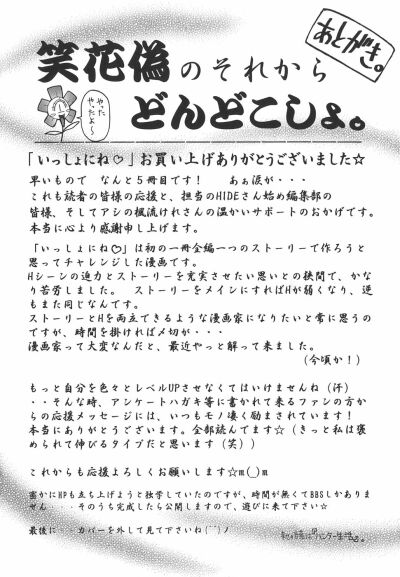 あとがき。
笑花偽のそれから
どんどこしょ。
やったやったよ〜
「いっしょにね♡」お買い上げありがとうございました☆
早いもので　なんと５冊目です！　あぁ涙が・・・
これも読者の皆様の応援と、担当のHIDEさん始め編集部の
皆様、そしてアシの楓流けれさんの温かいサポートのおかげです。
本当に心より感謝申し上げます。
「いっしょにね♡」は初の一冊全編一つのストーリーで作ろうと
思ってチャレンジした漫画です。
Hシーンの迫力とストーリーを充実させたい思いとの狭間で、かな
り苦労しました。　ストーリーをメインにすればHが弱くなり、逆
もまた同じなんです。
ストーリーとHを両立できるような漫画家になりたいと常に思うの
ですが、時間を掛ければ〆切が・・・
漫画家って大変なんだと、最近やっと解って来ました。
（今頃か！）
もっと自分を色々とレベルUPさせなくてはいけませんね（汗）
・・そんな時、アンケートハガキ等に書かれて来るファンの方か
らの応援メッセージには、いつもモノ凄く励まされています！
本当にありがとうございます。全部読んでます☆（きっと私は褒
められて伸びるタイプだと思います（笑））
これからも応援よろしくお願いします☆m(_)m
密かにHPも立ち上げようと独学していたのですが、時間が無くてBBSしかありま
せん・・・そのうち完成したら公開しますので、遊びに来て下さい☆
最後に・・カバーを外して見て下さいね(¯¯)ノ